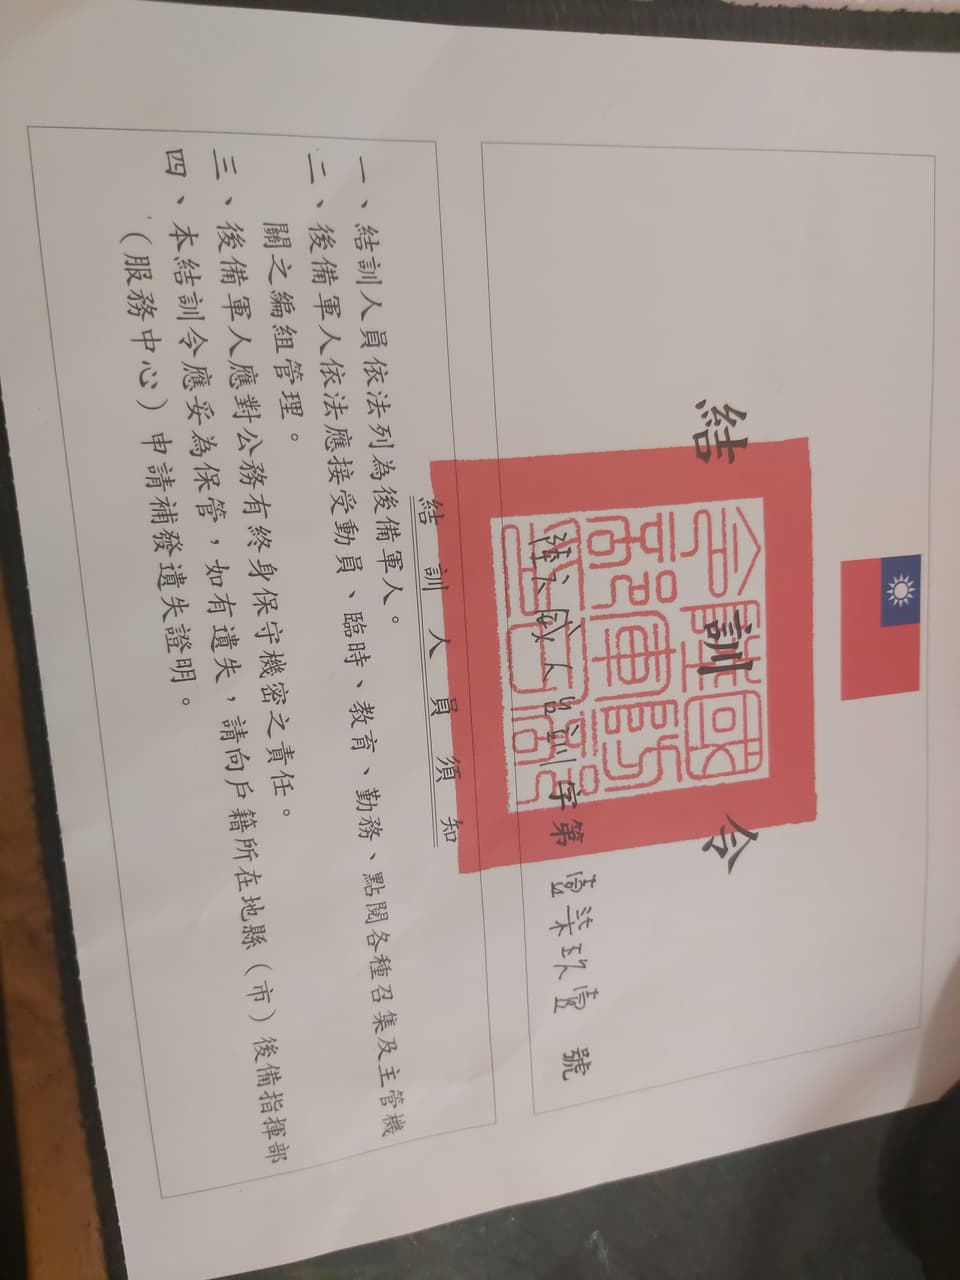 結訓令
字第壹柒玖壹號
結訓人員須知
一、結訓人員依法列為後備軍人。
二、後備軍人依法應接受動員、臨時、教育、勤務、點閱各種召集及主管機
關之編組管理。
三、後備軍人應對公務有終身保守機密之責任。
四、本結訓令應妥為保管，如有遺失，請向戶籍所在地縣（市）後備指揮部
（服務中心）申請補發遺失證明。